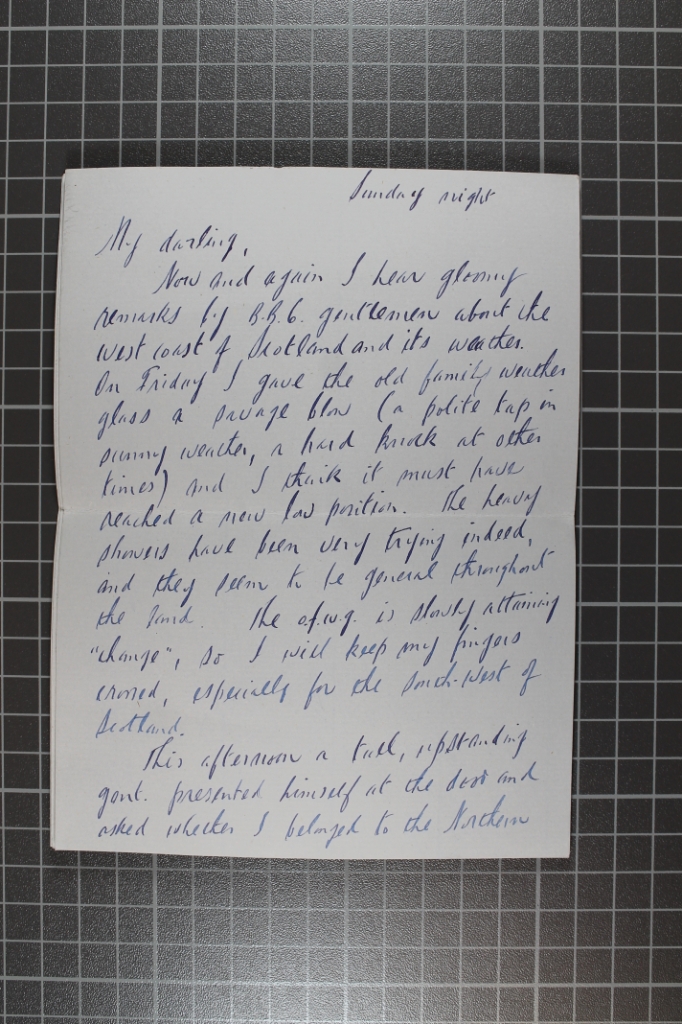 Sunday night
My darling,
Now and again I hear gloomy
remarks by B.B.C. gentlemen about the
west coast of Scotland and its weather.
On Friday I gave the old family weather
glass a savage blow (a polite tap in
sunny weather, a hard knock at other
times) and I think it must have
reached a new low position. The heavy
showers have been very trying indeed,
and they seem to be general throughout
the land. The o.f.w.g. is slowly attaining
"change", so I will keep my fingers
crossed, especially for the south-west of
Scotland.
This afternoon a tall, upstanding
gent. presented himself at the door and
asked whether I belonged to the Northern